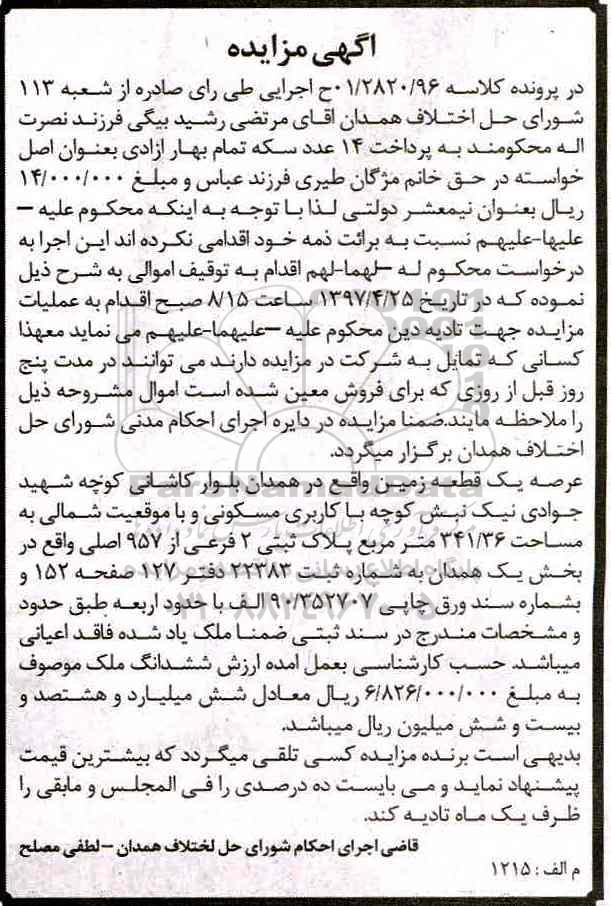 اگهی مزایده
در پرونده کلاسه ۰۱/۲۸۲۰/۹۶ح اجرایی طی رای صادره از شعبه ۱۱۳
شورای حل اختلاف همدان اقای مرتضی رشید بیگی فرزند نصرت
اله محکومند به پرداخت ۱۴ عدد سکه تمام بهار ازادی بعنوان اصل
خواسته در حق خانم مژگان طیری فرزند عباس و مبلغ ۱۴/۰۰۰/۰۰۰
ریال بعنوان نیمعشر دولتی لذا با توجه به اینکه محکوم علیه –
علیها-علیهم نسبت به برائت ذمه خود اقدامی نکرده اند این اجرا به
درخواست محکوم له –لهما-لهم اقدام به توقیف اموالی به شرح ذیل
نموده که در تاریخ ۱۳۹۷/۴/۲۵ ساعت ۸/۱۵ صبح اقدام به عملیات
مزایده جهت تادیه دین محکوم علیه –علیهما-علیهم می نماید معهذا
کسانی که تمایل به شرکت در مزایده دارند می توانند در مدت پنج
روز قبل از روزی که برای فروش معین شده است اموال مشروحه ذیل
را ملاحظه مایند.ضمنا مزایده در دایره اجرای احکام مدنی شورای حل
اختلاف همدان برگزار میگردد.
عرصه یک قطعه زمین واقع در همدان بلوار کاشانی کوچه شهید
جوادی نیک نبش کوچه با کاربری مسکونی و با موقعیت شمالی به
مساحت ۳۴۱/۳۶ متر مربع پلاک ثبتی ۲ فرعی از ۹۵۷ اصلی واقع در
بخش یک همدان به شماره ثبت ۲۲۳۸۳ دفتر ۱۲۷ صفحه ۱۵۲ و
بشماره سند ورق چاپی ۹۰/۳۵۲۷۰۷ الف با حدود اربعه طبق حدود
و مشخصات مندرج در سند ثبتی ضمنا ملک یاد شده فاقد اعیانی
میباشد. حسب کارشناسی بعمل امده ارزش ششدانگ ملک موصوف
به مبلغ ۶/۸۲۶/۰۰۰/۰۰۰ ریال معادل شش میلیارد و هشتصد و
بیست و شش میلیون ریال میباشد.
بدیهی است برنده مزایده کسی تلقی میگردد که بیشترین قیمت
پیشنهاد نماید و می بایست ده درصدی را فی المجلس و مابقی را
ظرف یک ماه تادیه کند.
قاضی اجرای احکام شورای حل لختلاف همدان –لطفی مصلح
م الف : ۱۲۱۵
ParsNamadData